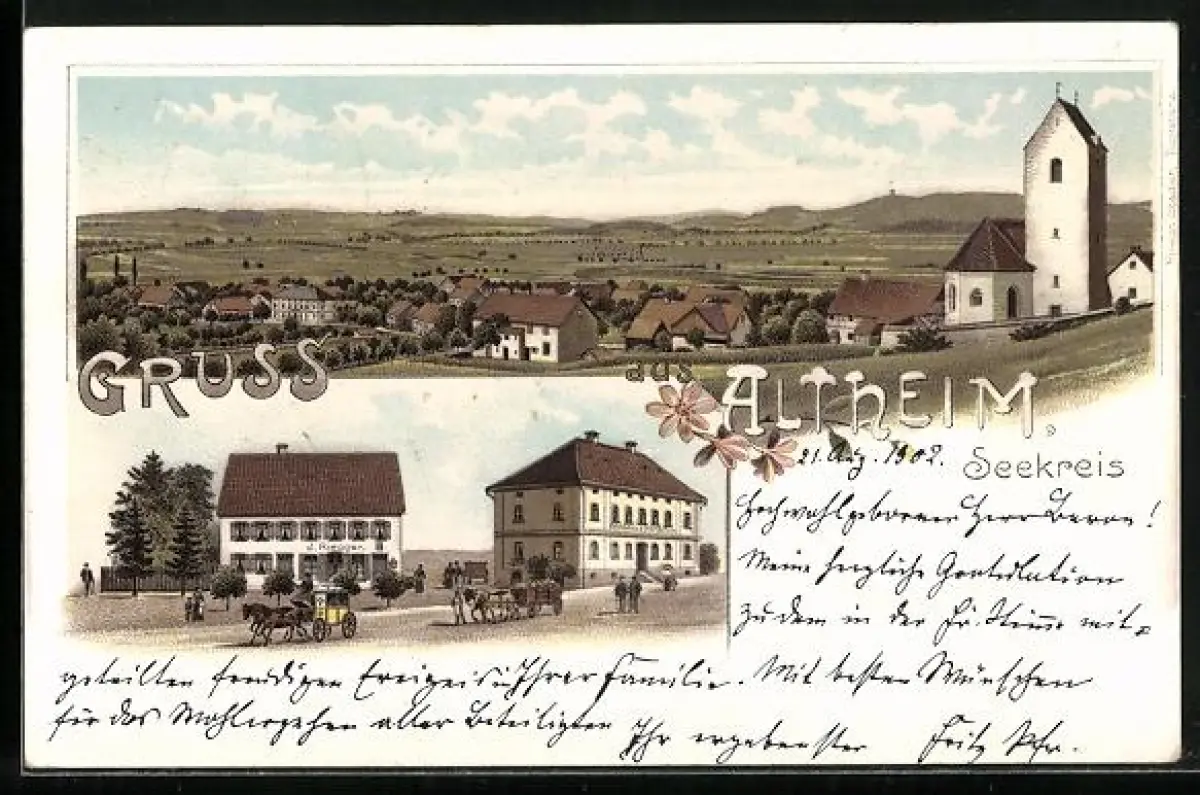 GRUSS aus ALTHEIM,
Seekreis
21. Aug. 1902.
Hochwohlgeborener Herr Baron!
Meine herzliche Gratulation
zu dem in der Fr. Stimme mit-
geteilten freudigen Ereignis i. Ihrer Familie. Mit besten Wünschen
für das Wohlergehen aller Beteiligten
Ihr ergebenster Fritz Pfr.